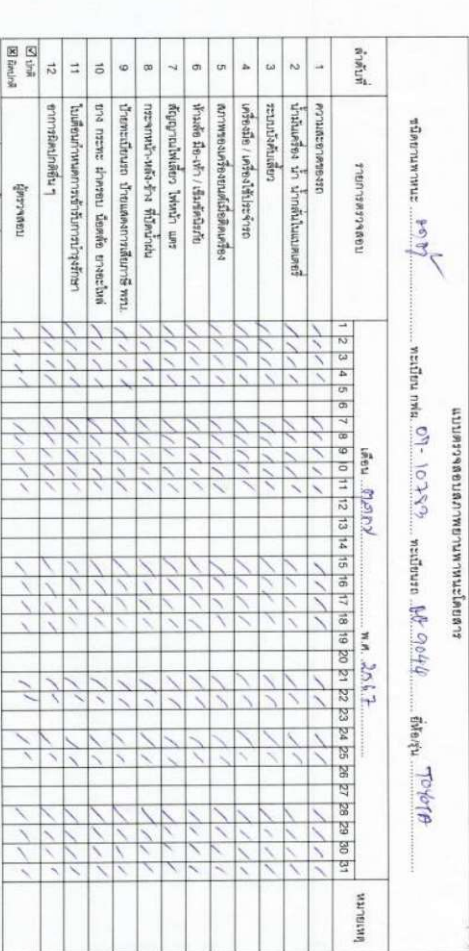 แบบตรวจสอบสภาพยานพาหนะโดยสาร
ชนิดยานพาหนะ ทะเบียน กฟผ. 09-10793 ทะเบียนรถ 9044 ยี่ห้อ/รุ่น TOYOTA
ลำดับที่ รายการตรวจสอบ เดือน ตุลาคม พ.ศ. 2567 หมายเหตุ
1 2 3 4 5 6 7 8 9 10 11 12 13 14 15 16 17 18 19 20 21 22 23 24 25 26 27 28 29 30 31
1 ความสะอาดของรถ
2 น้ำมันเครื่อง น้ำ น้ำกลั่นในแบตเตอรี่
3 ระบบบังคับเลี้ยว
4 เครื่องมือ / เครื่องใช้ประจำรถ
5 สภาพของเครื่องยนต์เมื่อติดเครื่อง
6 ห้ามล้อ มือ-เท้า / เข็มขัดนิรภัย
7 สัญญาณไฟเลี้ยว ไฟหน้า แตร
8 กระจกหน้า-หลัง-ข้าง ที่ปัดน้ำฝน
9 ป้ายทะเบียนรถ ป้ายแสดงการเสียภาษี พรบ.
10 ยาง กระทะ ฝาครอบ น๊อตล้อ ยางอะไหล่
11 ใบเตือนกำหนดการเข้ารับการบำรุงรักษา
12 อาการผิดปกติอื่น ๆ
☑ ปกติ
☒ ผิดปกติ
ผู้ตรวจสอบ